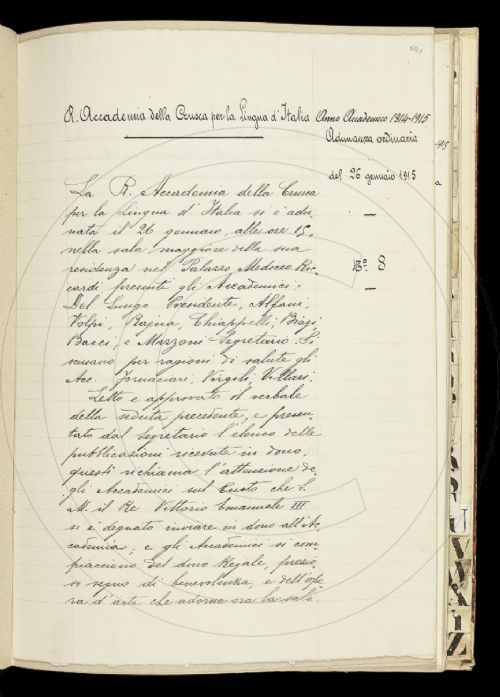 R. Accademia della Crusca per la Lingua d'Italia
Anno Accademico 1914-1915
Adunanza ordinaria
del 26 gennaio 1915
No. 8
La R. Accademia della Crusca
per la Lingua d'Italia si è adu
nata il 26 gennaio, alle ore 15,
nella sala maggiore della sua
residenza nel Palazzo Mediceo Ric
cardi presenti gli Accademici:
Del Lungo Presidente, Alfani,
Volpi, Rajna, Chiappelli, Biagi,
Bacci, e Mazzoni Segretario. Si
scusano per ragioni di salute gli
Acc. Fornaciari, Virgili, Villari.
Letto e approvato il verbale
della seduta precedente, e presen
tato dal Segretario l'elenco delle
pubblicazioni ricevute in dono,
questi richiama l'attenzione de
gli Accademici sul Busto che S.
M. il Re Vittorio Emanuele III
si è degnato inviare in dono all'Ac
cademia; e gli Accademici si com
piacciono del dono Regale, prezio
so segno di benevolenza, e dell'ope
ra d'arte che adorna ora la sala